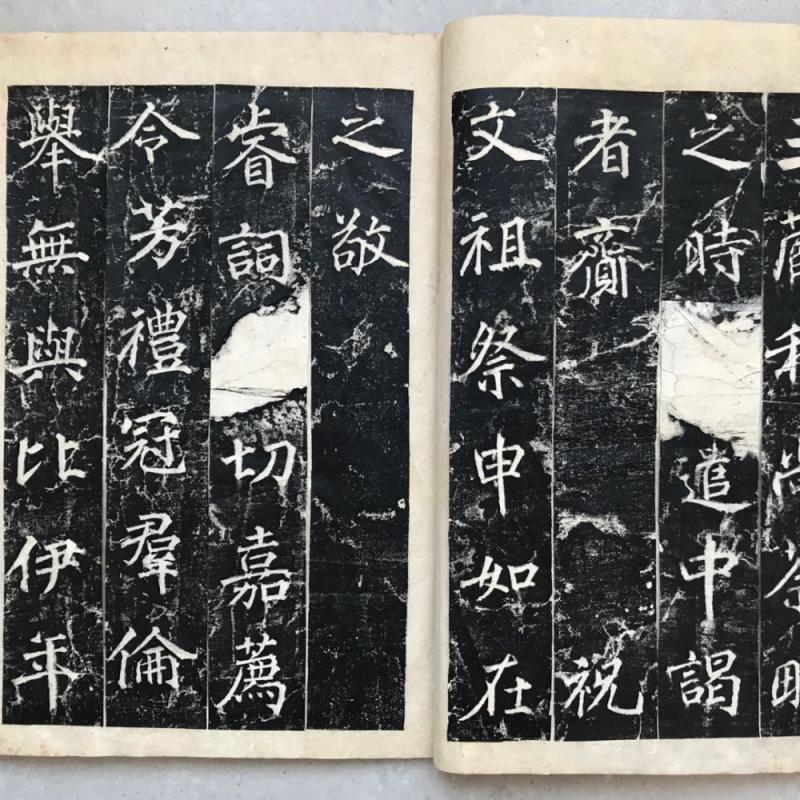 之時遣中謁
者齎祝
文祖祭申如在
之敬
睿詞切嘉薦
令芳禮冠羣倫
舉無與比伊年